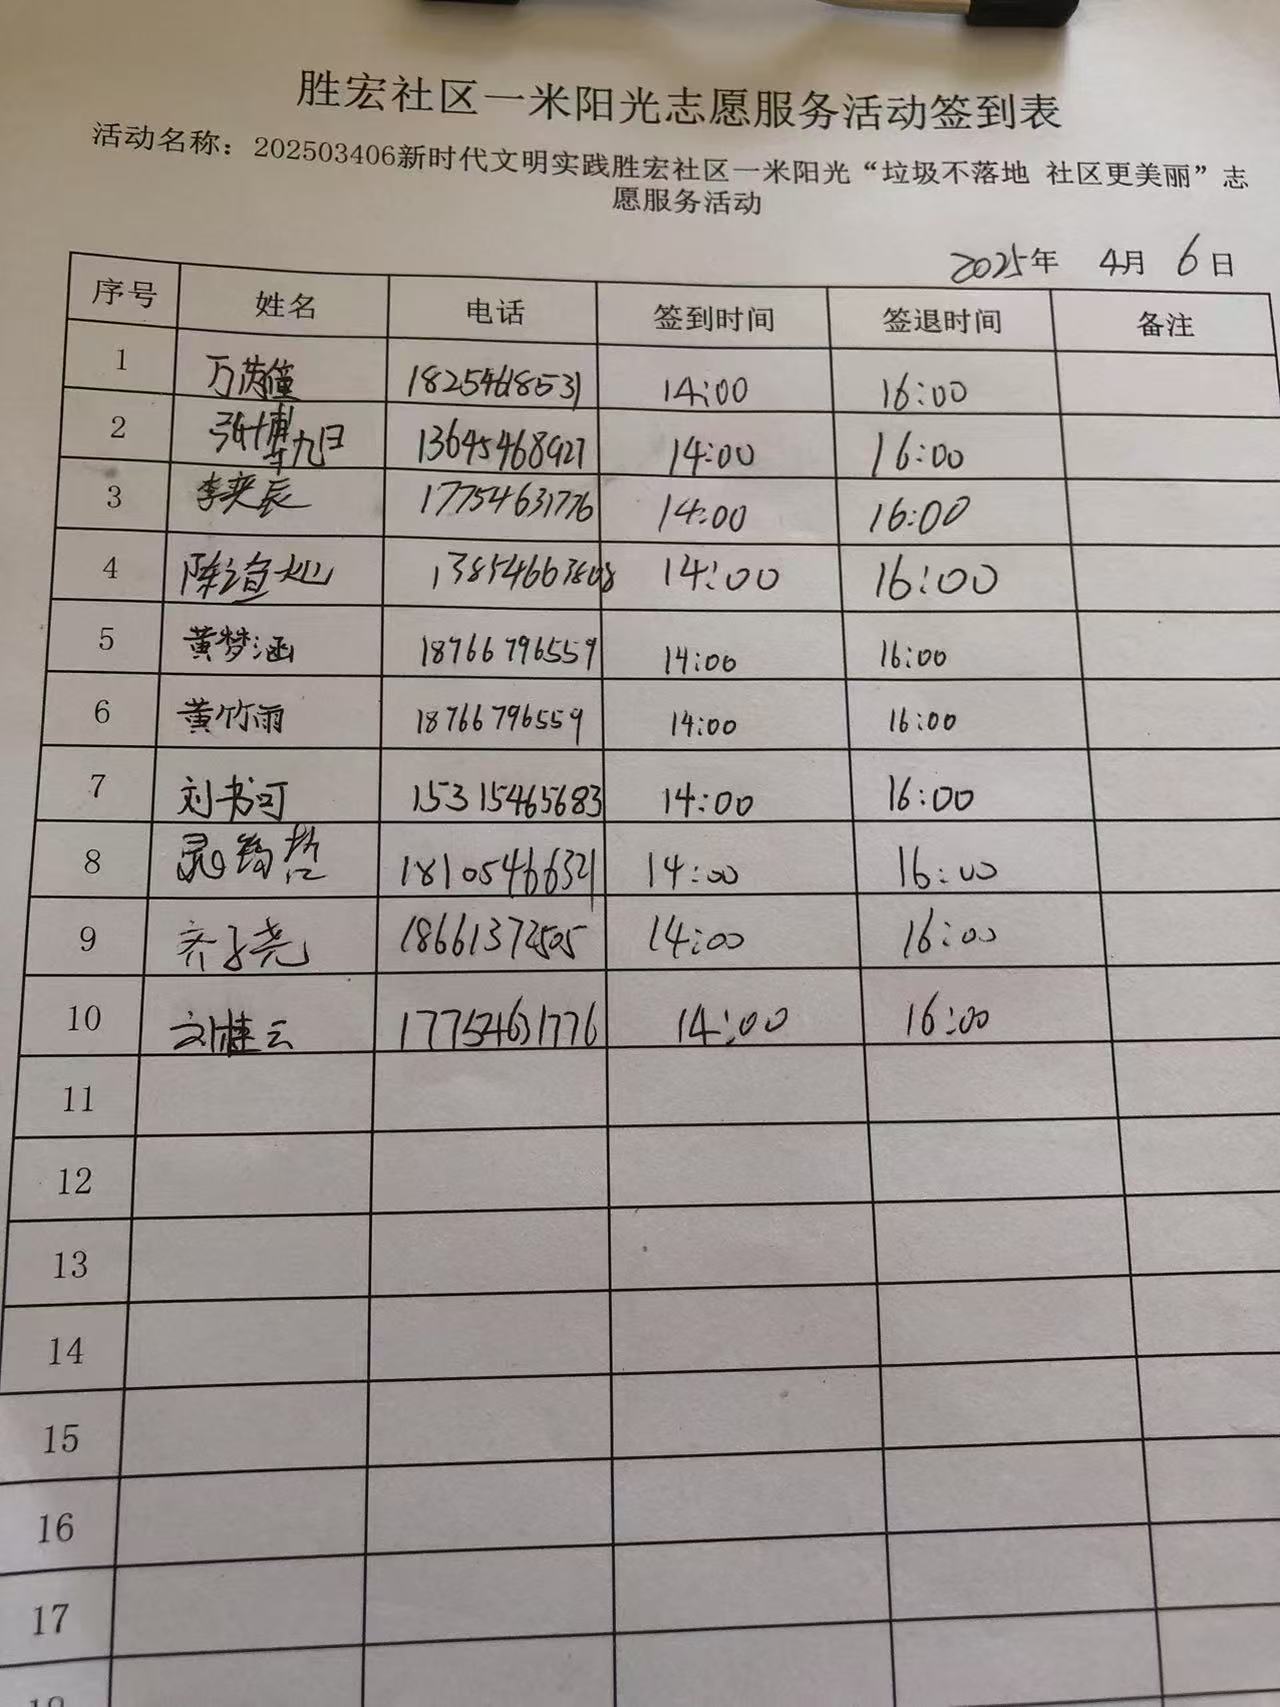 胜宏社区一米阳光志愿服务活动签到表
活动名称：202503406新时代文明实践胜宏社区一米阳光“垃圾不落地 社区更美丽”志
愿服务活动
2025年 4月 6日
序号 姓名 电话 签到时间 签退时间 备注
1 万 18254618531 14:00 16:00
2 张博 13645468927 14:00 16:00
3 李奕辰 17754631776 14:00 16:00
4 13854663808 14:00 16:00
5 黄梦涵 18766796559 14:00 16:00
6 黄竹雨 18766796559 14:00 16:00
7 刘书可 15315465683 14:00 16:00
8 18105466321 14:00 16:00
9 齐子尧 18661372505 14:00 16:00
10 刘桂云 17754631776 14:00 16:00
11
12
13
14
15
16
17